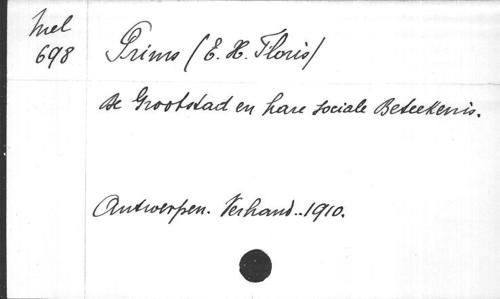 Mel
698
Prims (E. H. Floris)
De Grootstad en hare sociale Beteekenis.
Antwerpen. Verhand.. 1910.